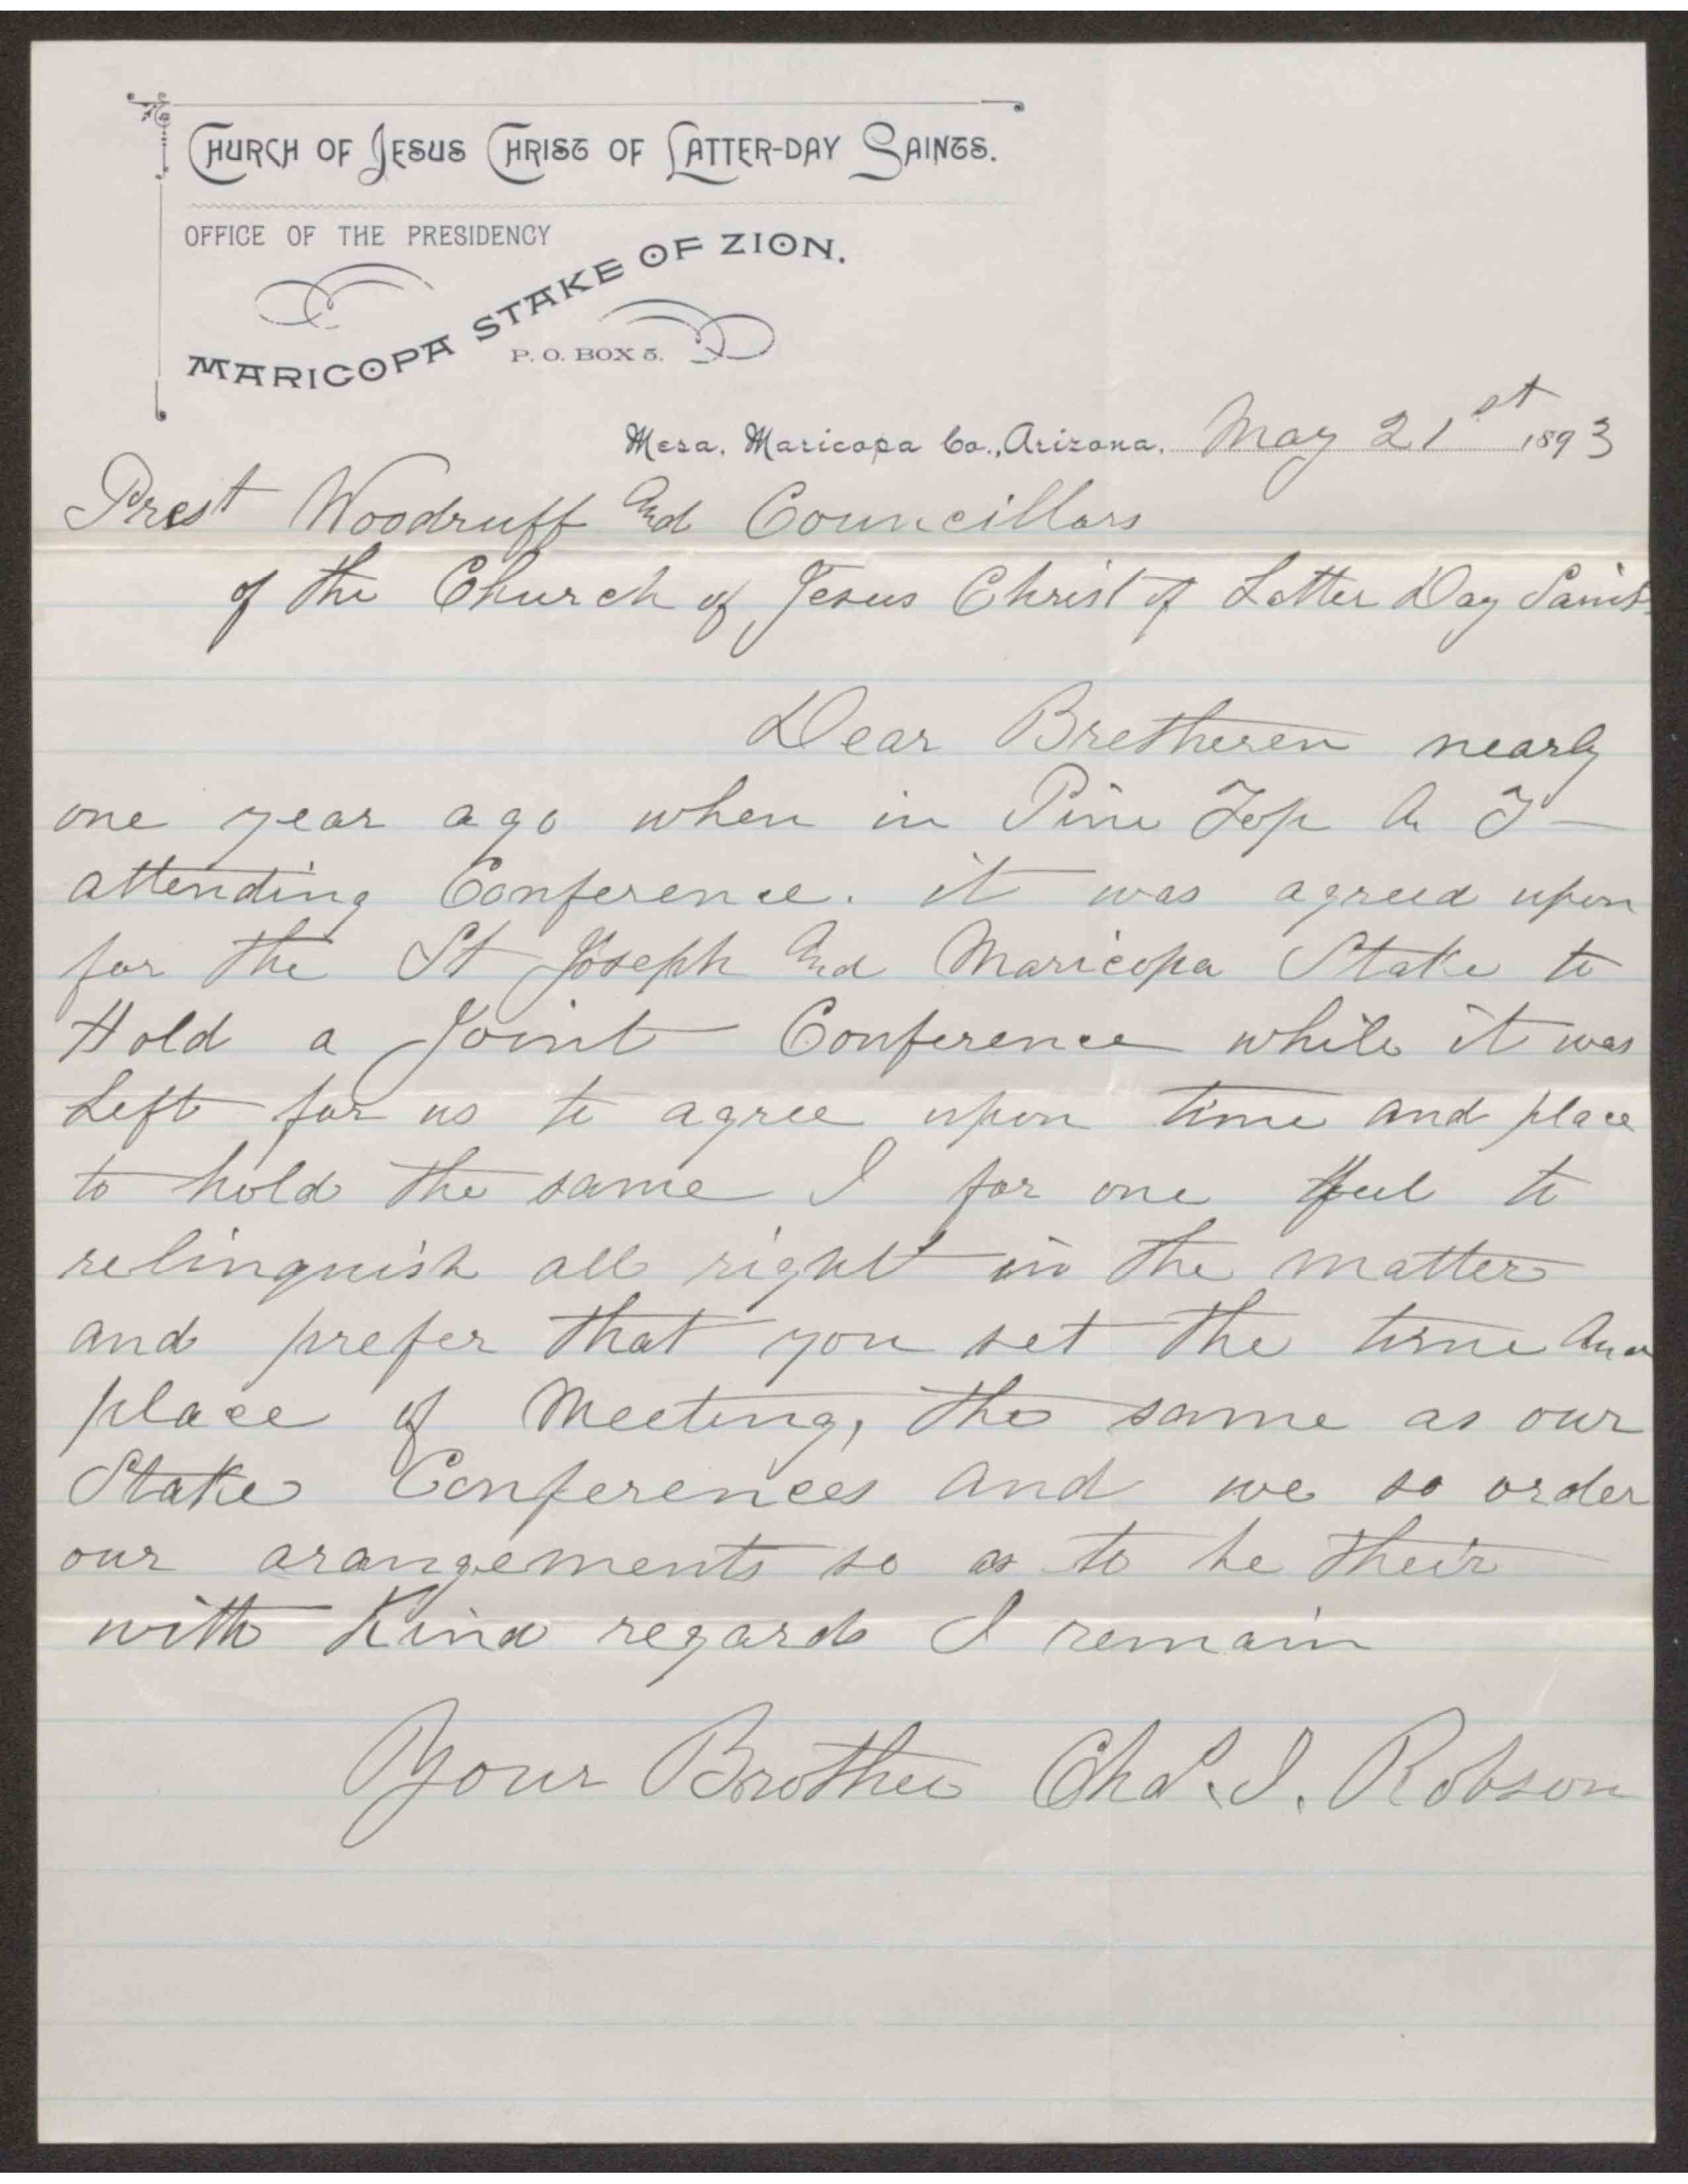 CHURCH OF JESUS CHRIST OF LATTER-DAY SAINTS.
OFFICE OF THE PRESIDENCY
MARICOPA STAKE OF ZION.
P. O. BOX 5.
Mesa, Maricopa Co., Arizona. May 21st 1893
Prest Woodruff And Councillars
of the Church of Jesus Christ of Latter Day Saints
Dear Bretheren nearly
one year ago when in Pine Top A T
attending Conference. it was agreed upon
for the St Joseph And Maricopa Stake to
Hold a Joint Conference while it was
Left for us to agree upon time and place
to hold the same I for one feel to
relinquish all right in the matter
and prefer that you set the time And
place of Meeting, the same as our
Stake Conferences and we so order
our arangements so as to be their
with Kind regards I remain
Your Brother Chas. I. Robson